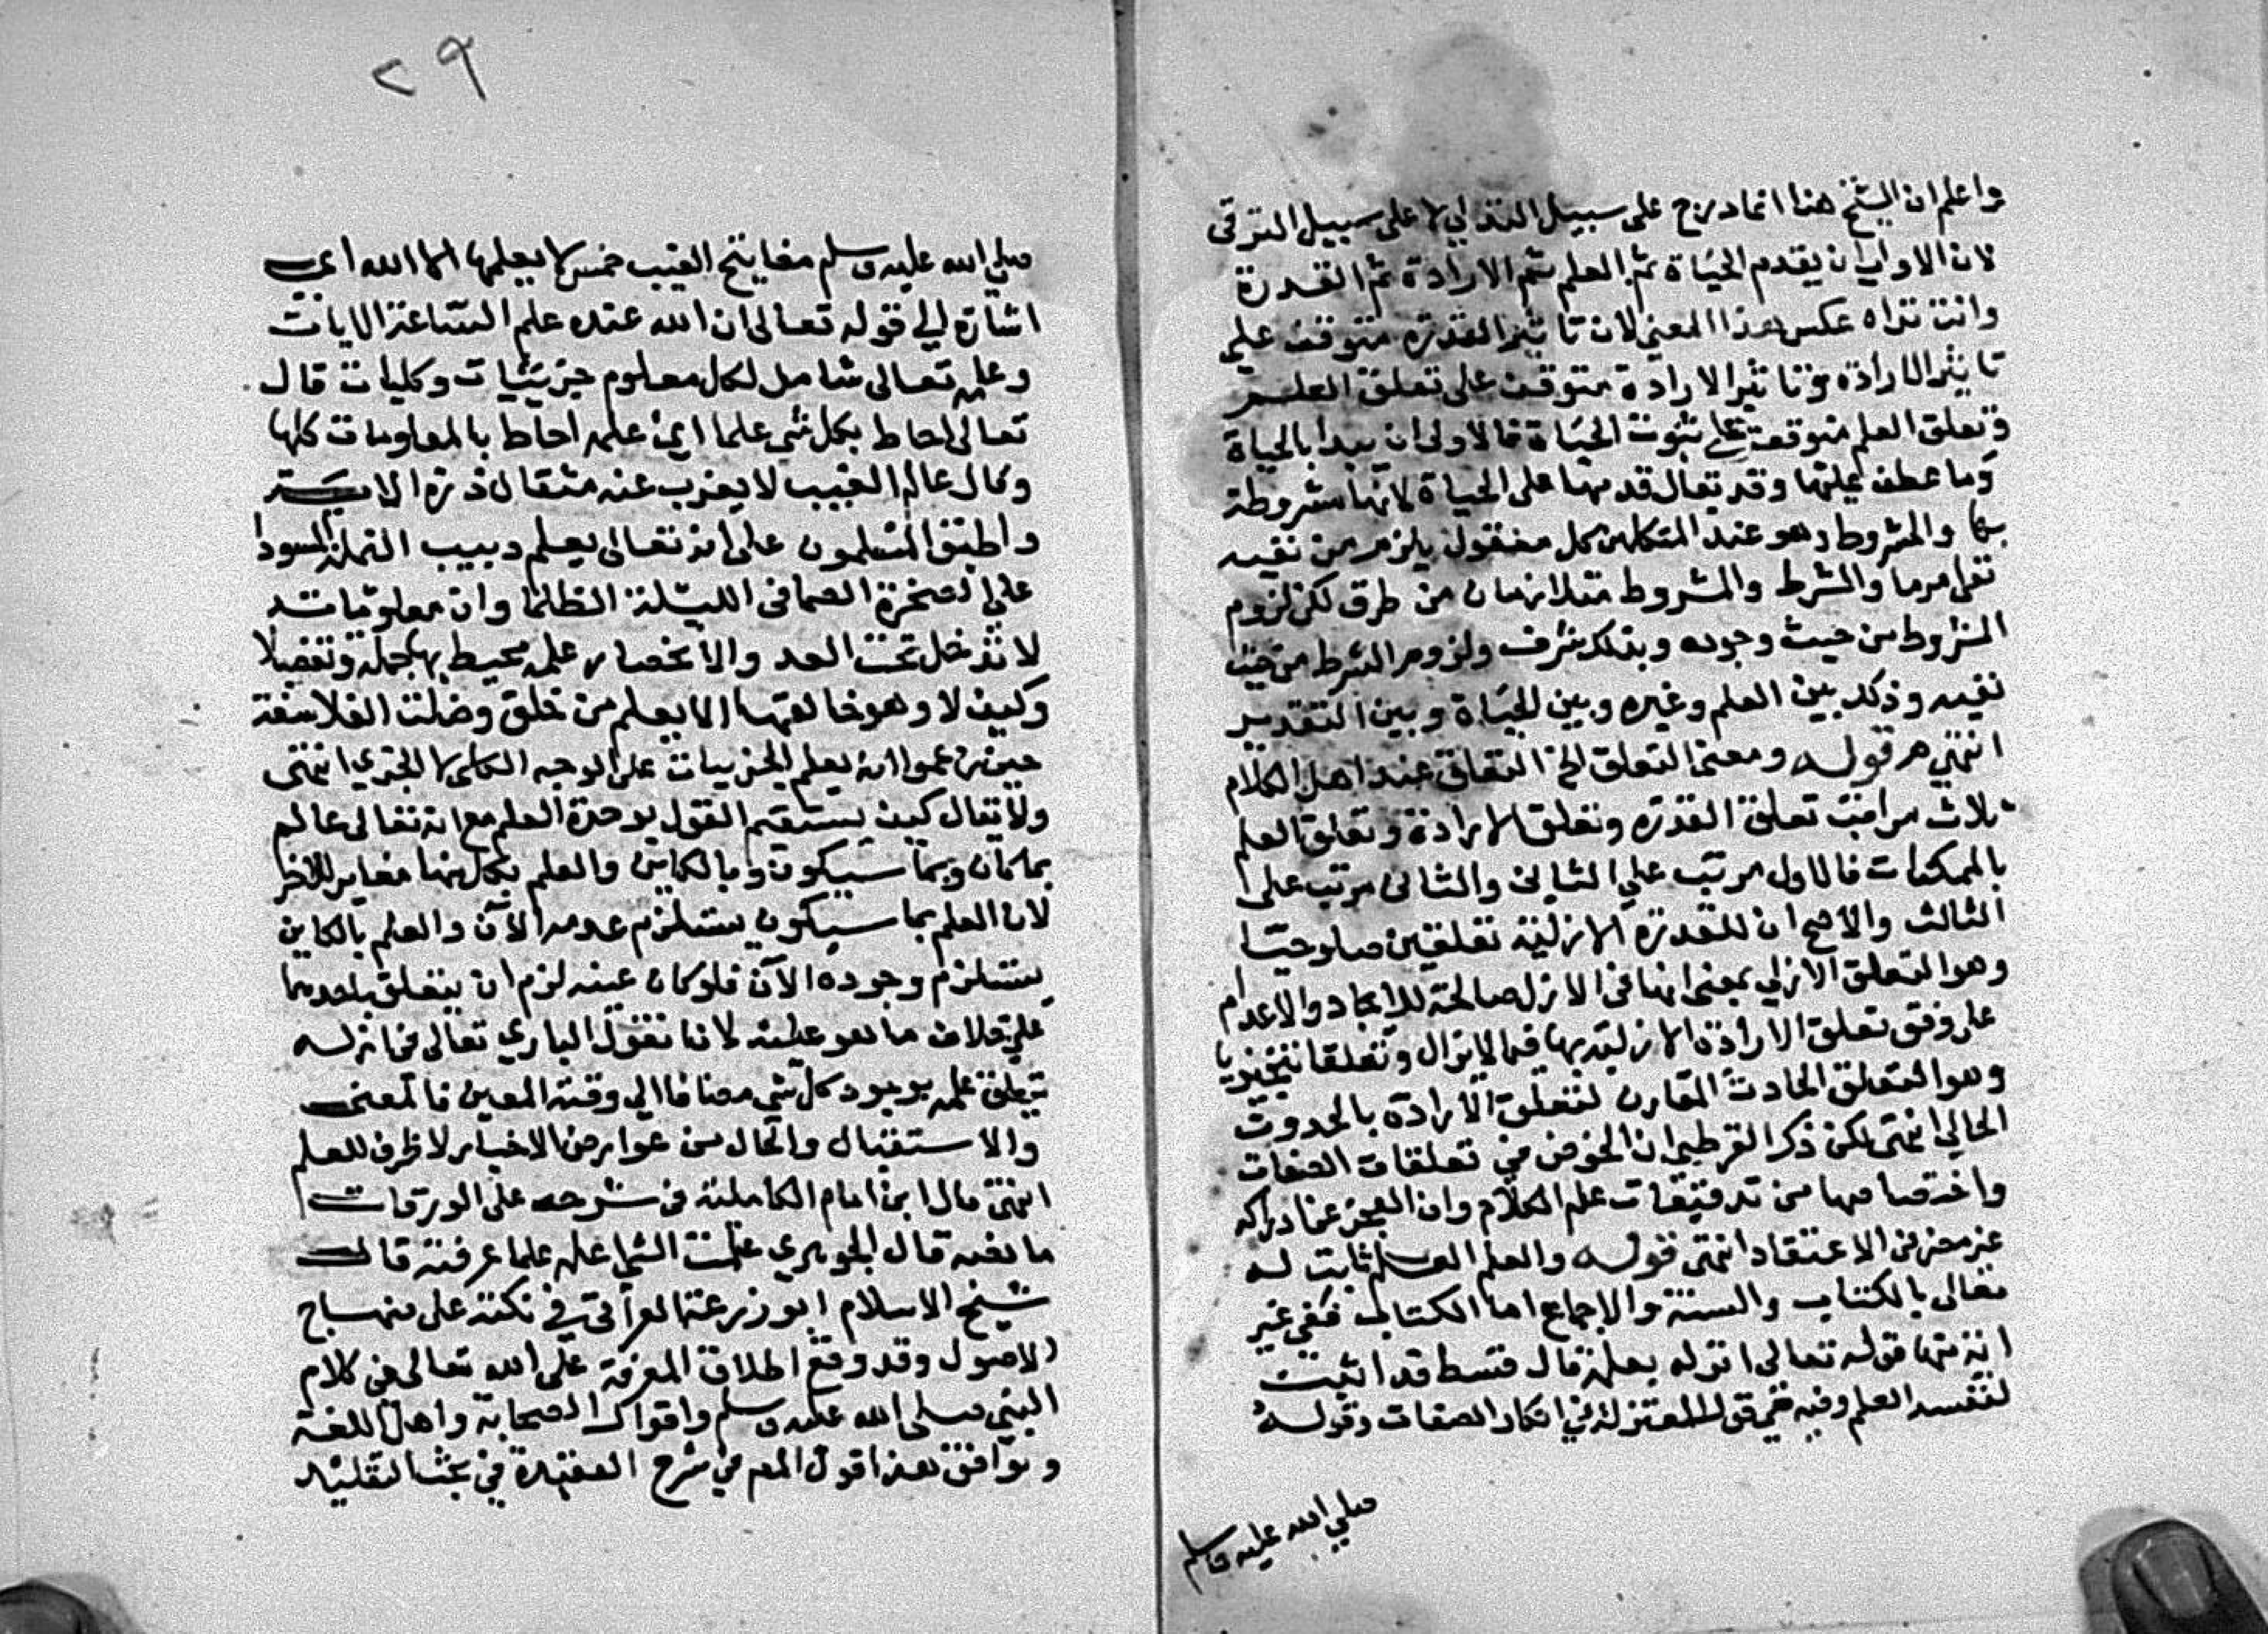 واعلم ان الشيخ هنا انما درج على سبيل التدلي لا على سبيل الترقى
لان الاولى ان يقدم الحياة ثم العلم ثم الارادة ثم القدرة
وانت تراه عكس هذا المعنى لان تاثير القدرة متوقف على
تاثير الارادة وتاثير الارادة متوقف على تعلق العلم
وتعلق العلم متوقف على ثبوت الحياة فالاولى ان يبدا بالحياة
وما عطف عليها وقد يقال قدمها على الحياة لانها مشروطة
بها والمشروط وهو عند المتكلمين كل معقول يلزم من نفيه
نفى امر ما والشرط والمشروط متلازمان من طرق لكن لزوم
المشروط من حيث وجوده وبذلك شرف ولزوم الشرط من حيث
نفيه وذلك بين العلم وغيره وبين الحياة وبين التقدير
انتهى قوله ومعنى التعلق الخ التعلق عند اهل الكلام
ثلاث مراتب تعلق القدرة وتعلق الارادة وتعلق العلم
بالممكنات فالاول مرتب على الثانى والثانى مرتب على
الثالث والاصح ان للقدرة الازلية تعلقين صلوحيا
وهو التعلق الازلي بمعنى انها فى الازل صالحة للايجاد والاعدام
على وفق تعلق الارادة الازلية بها فيما لايزال وتعلقا تنجيزيا
وهو التعلق الحادث المقارن لتعلق الارادة بالحدوث
الحالي انتهى لكن ذكر القرطبي ان الخوض في تعلقات الصفات
واختصاصها من تدقيقات علم الكلام وان العجز عن ادراكه
غير مضر فى الاعتقاد انتهى قوله والعلم العلم ثابت له
تعالى بالكتاب والسنة والاجماع اما الكتاب ففي غير
اية منها قوله تعالى انزله بعلمه قال قسط قد اثبت
لنفسه العلم وفيه قول المعتزلة في انكار الصفات وقوله
صلي الله عليه وسلم
٢٩
صلي الله عليه وسلم مفاتيح الغيب خمس لا يعلمها الا الله اعى
اشارة الي قوله تعالى ان الله عنده علم الساعة الايات
وعلمه تعالى شامل لكل معلوم جزئيات وكليات قال
تعالى احاط بكل شي علما اى علمه احاط بالمعلومات كلها
وقال عالم الغيب لا يعزب عنه مثقال ذرة الاية
واطبق المسلمون على انه تعالى يعلم دبيب النملة السودا
على الصخرة الصما فى الليلة الظلما وان معلوماته
لا تدخل تحت العد والانحصار علمه محيط بها جملة وتفصيلا
وكيف لا وهو خالقها الا يعلم من خلق وضلت الفلاسفة
حين زعموا انه يعلم الجزييات على الوجه الكلى لا الجزي انتهى
ولا يقال كيف يستقيم القول بوحدة العلم مع انه تعالى عالم
بما كان وبما سيكون وبالكاين والعلم بكل منها مغاير للاخر
لان العلم بما سيكون يستلزم عدمه الآن والعلم بالكاين
يستلزم وجوده الآن فلو كان عينه لزم ان يتعلق باحدهما
على خلاف ما هو عليه لانا نقول الباري تعالى فى ازله
تعلق علمه بوجود كل شي مضافا الي وقته المعين فالمعنى
والاستقبال والحال من عوارض الاخبار لا ظرف للعلم
انتهى قال ابن امام الكاملية فى شرحه على الورقات
ما نصه قال الجوهري علمت الشي اعلمه علما عرفته قال
شيخ الاسلام ابو زرعة العراقي في نكته على منهاج
الاصول وقد وقع اطلاق المعرفة على الله تعالى فى كلام
النبي صلى الله عليه وسلم واقوال الصحابة واهل اللغة
ويوافق هذا قول المص في شرح العقيدة في بحث التقليد